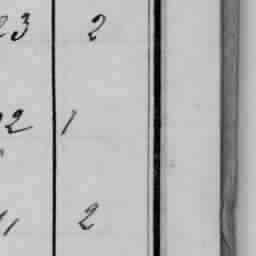 23 2
22 1
11 2